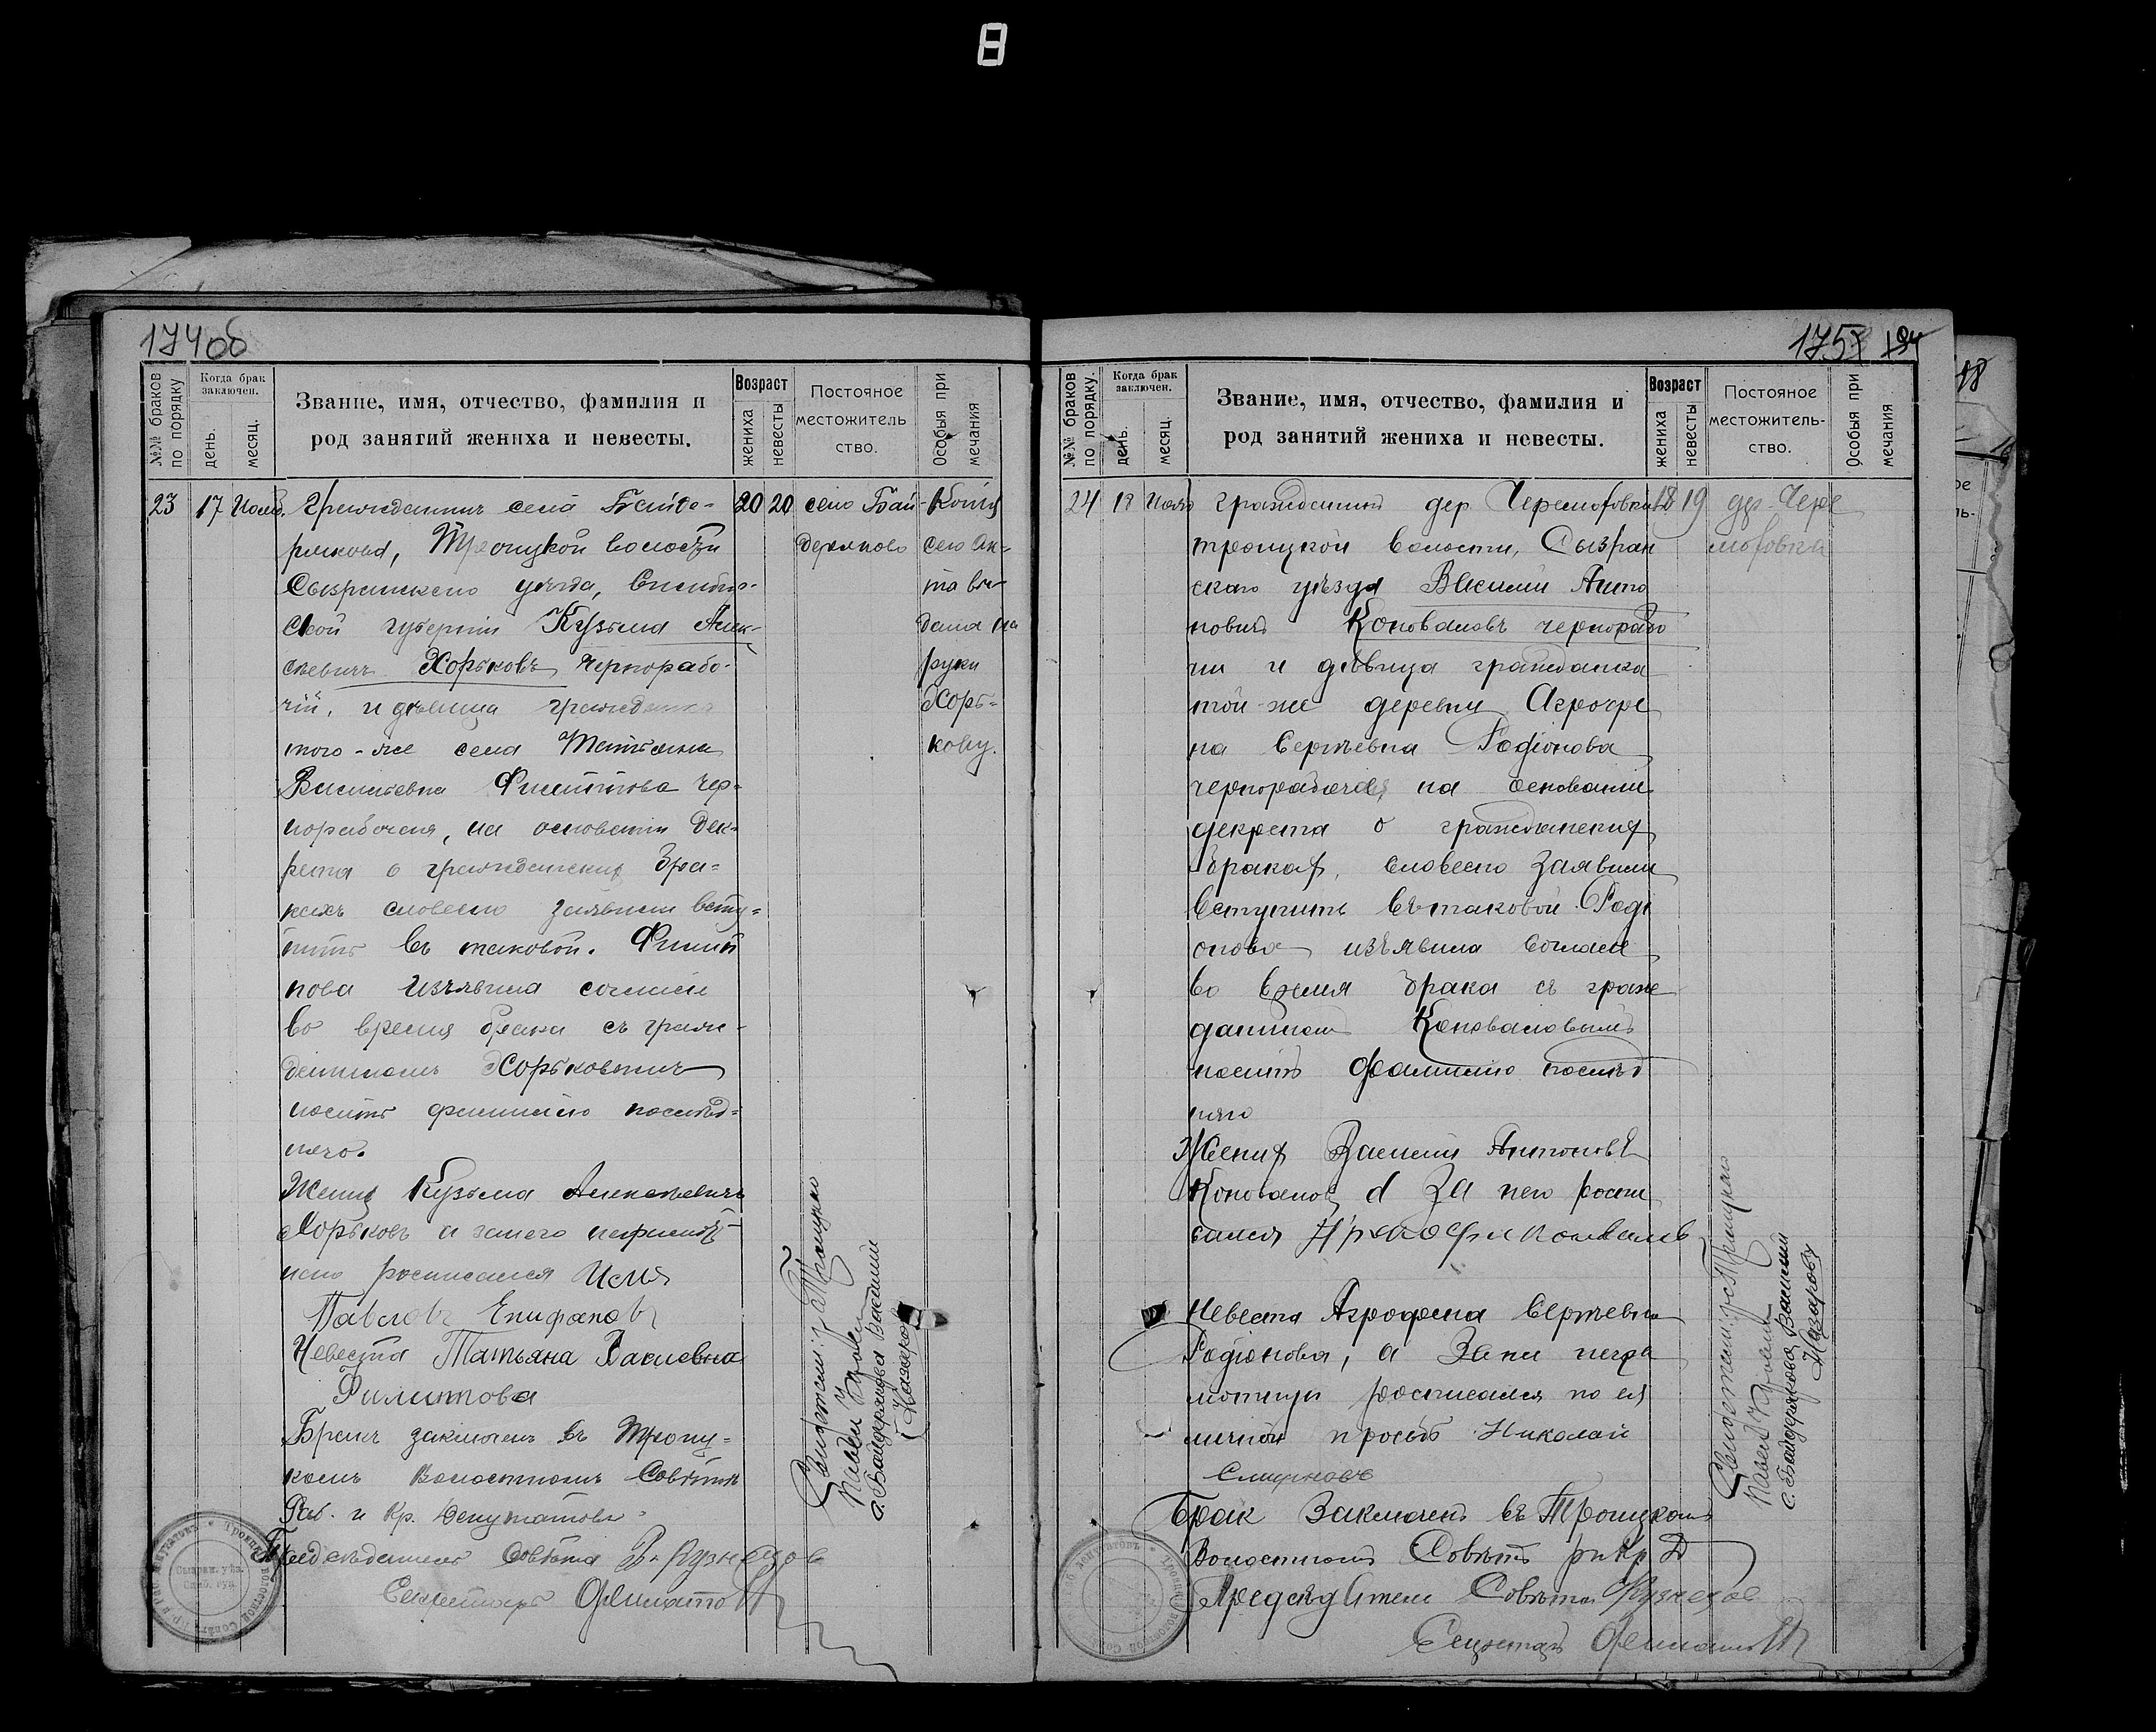 8
174об
№№ браков по порядку
Когда брак заключен.
день.
месяц.
Звание, имя, отчество, фамилия и
род занятий жениха и невесты.
Возраст
жениха
невесты
Постояное
местожитель
ство.
Особыя при
мечания
23 17 Июля. Гражданинъ села Байде- 20 20 село Бай- Копія
рякова, Троицкой волости деряково сего ак-
Сызранскаго уѣзда, Симбир- та вы
ской губерніи Кузьма Алек- дана на
сѣевичъ Хорьковъ чернорабо- руки
чій, и дѣвица гражданка Хорь-
того-же села Татьяна кову.
Васильевна Филиппова чер-
норабочая, на основаніи дек-
рета о гражданских бра-
кахъ словесно заявили всту-
пить въ таковой. Филип
пова изъявила согласіе
во время брака съ граж-
даниномъ Хорьковымъ
носить фамилію послѣд-
няго.
Жених Кузьма Алексѣевичъ
Хорьковъ а за него неграмот-
наго росписался Илья
Павловъ Епифановъ
Невеста Татьяна Васлевна
Филипова
Бракъ заключенъ въ Троиц-
комъ Волостномъ Совѣтѣ
Раб. и Кр. Депутатовъ.
Предсѣдатель Совѣта В. Кузнецов
Секретарь Филиппов
Свидетели: с. Троицкаго
Павел
с. Байдерякова Василий
Назаров
175 184
№№ браков по порядку.
Когда брак заключен.
день.
месяц
Звание, имя, отчество, фамилия и
род занятий жениха и невесты.
Возраст
жениха
невесты
Постояное
местожитель-
ство.
Особыя при
мечания
24 18 Июля гражданинъ дер. Черемоховки 18 19 дер. Чере
троицкой волости, Сызран моховка
скаго уѣзда Василий Анто
новичъ Коноваловъ чернорабо
чи и дѣвица гражданка
той-же деревни Агрофе
на Сергѣевна Родіонова
чернорабочая, на основаніи
декрета о гражданских
браках, словесно заявили
вступить въ таковой. Роді
онова изъявила согласіе
во время брака съ граж
даниномъ Коноваловымъ
носить фамилию послѣд
няго
Жених Василий Антоновъ
Коновалов а За него роспи
сался
Невеста Агрофена Сергѣевна
Родіонова, а За ни негра
мотную росписался по ея
личной просьбѣ Николай
Смирновъ
Брак Заключенъ въ Троицкомъ
Волостномъ Совѣтѣ р и Кр Д
Предсѣдатель Совѣта Кузнецов
Секретарь Филиппов
Свидетели: с. Троицкаго
Павел
с. Байдерякова Василий
Назаровъ